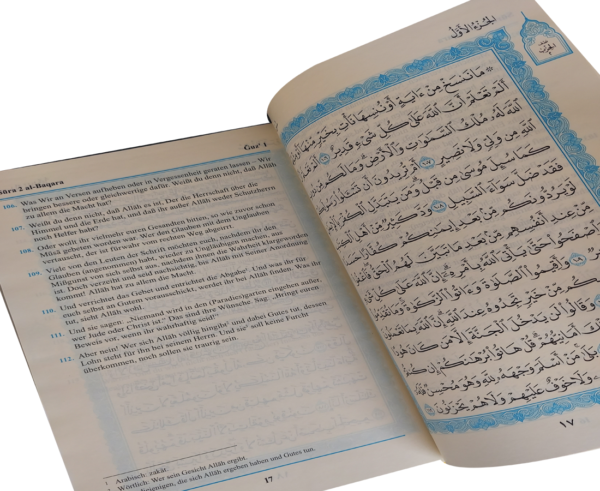 Sūra 2 al-Baqara
Ǧuzʾ 1
106. Was Wir an Versen aufheben oder in Vergessenheit geraten lassen – Wir
bringen bessere oder gleichwertige dafür. Weißt du denn nicht, daß Allāh
zu allem die Macht hat?
107. Weißt du denn nicht, daß Allāh es ist, Der die Herrschaft über die
Himmel und die Erde hat, und daß ihr außer Allāh weder Schutzherrn
noch Helfer habt?
108. Oder wollt ihr vielmehr euren Gesandten bitten, so wie zuvor schon
Mūsā gebeten worden war. Wer den Glauben mit dem Unglauben
vertauscht, der ist fürwahr vom rechten Weg abgeirrt.
109. Viele von den Leuten der Schrift möchten euch, nachdem ihr den
Glauben (angenommen) habt, wieder zu Ungläubigen machen, aus
Mißgunst von sich selbst aus, nachdem ihnen die Wahrheit klargeworden
ist. Doch verzeiht und seid nachsichtig, bis Allāh mit Seiner Anordnung
kommt! Allāh hat zu allem die Macht.
110. Und verrichtet das Gebet und entrichtet die Abgabe¹. Und was ihr für
euch selbst an Gutem vorausschickt, werdet ihr bei Allāh finden. Was ihr
tut, sieht Allāh wohl.
111. Und sie sagen: „Niemand wird in den (Paradies)garten eingehen außer,
wer Jude oder Christ ist.“ Das sind ihre Wünsche. Sag: „Bringt euren
Beweis vor, wenn ihr wahrhaftig seid!“
112. Aber nein! Wer sich Allāh völlig hingibt² und dabei Gutes tut, dessen
Lohn steht für ihn bei seinem Herrn. Und sie³ soll keine Furcht
überkommen, noch sollen sie traurig sein.
1 Arabisch: zakāt.
2 Wörtlich: Wer sein Gesicht Allāh ergibt.
diejenigen, die sich Allāh ergeben haben und Gutes tun.
17
الجزء الأول
ما ننسخ من ءاية أو ننسها نأت بخير منها أو
ألم تعلم أن الله على كل شيء قدير ألم تع
الله له ملك السموت والأرض وما لكم
الله من ولي ولا نصير أم تريدون أن تسئلوا رسو
كما سئل موسى من قبل ومن يتبدل الكفر
فقد ضل سواء السبيل ود كثير من
لو يردونكم من بعد إيمنكم كفارا حسدا
من عند أنفسهم من بعد ما تبين لهم الحق فاعفوا
واصفحوا حتى يأتي الله بأمره إن الله على كل
وأقيموا الصلوة وءاتوا الزكوة وما تقدموا
كم من خير تجدوه عند الله إن الله بما تعملون
وقالوا لن يدخل الجنة إلا من كان هودا
أمانيهم قل هاتوا برهنكم إن كنتم
بلى من أسلم وجهه لله وهو محسن فله
ولا خوف عليهم ولا هم يحزنون
١٧